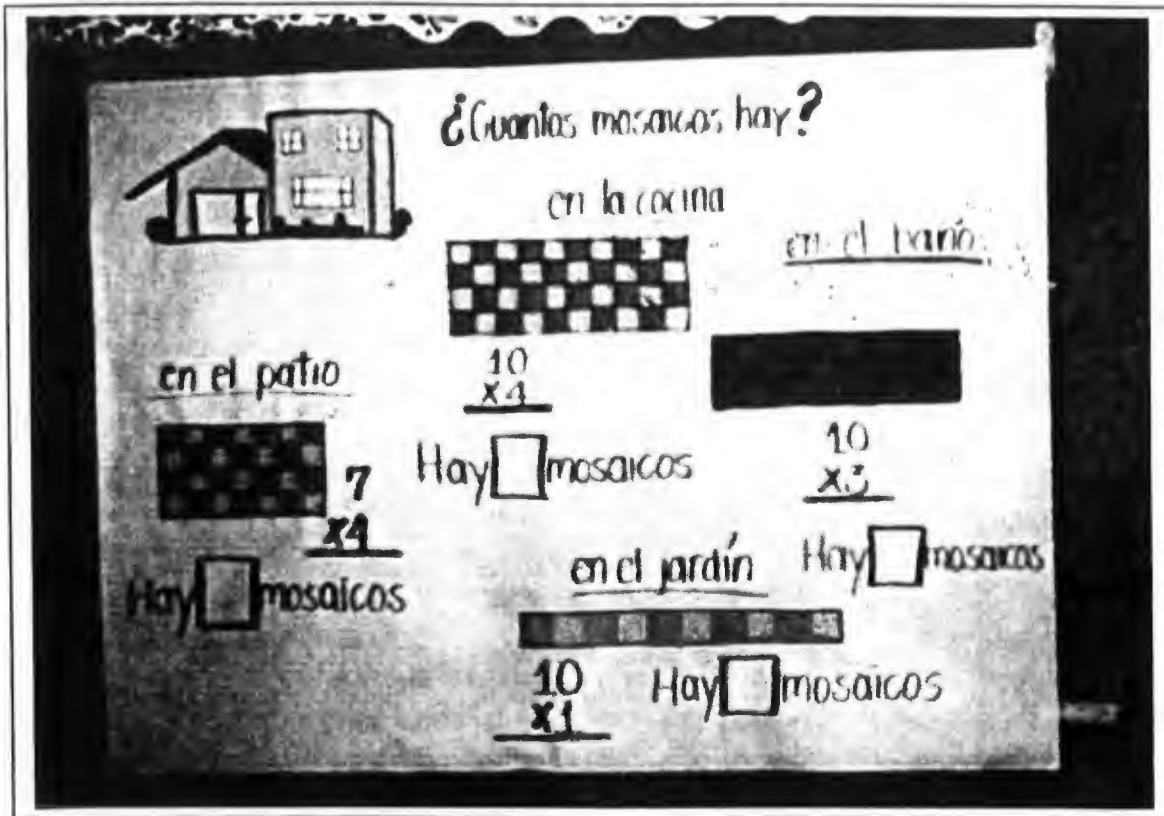 ¿Cuantos mosaicos hay?
en la cocina
10
x4
Hay mosaicos
en el baño
10
x3
Hay mosaicos
en el patio
7
x4
Hay mosaicos
en el jardín
10
x1
Hay mosaicos